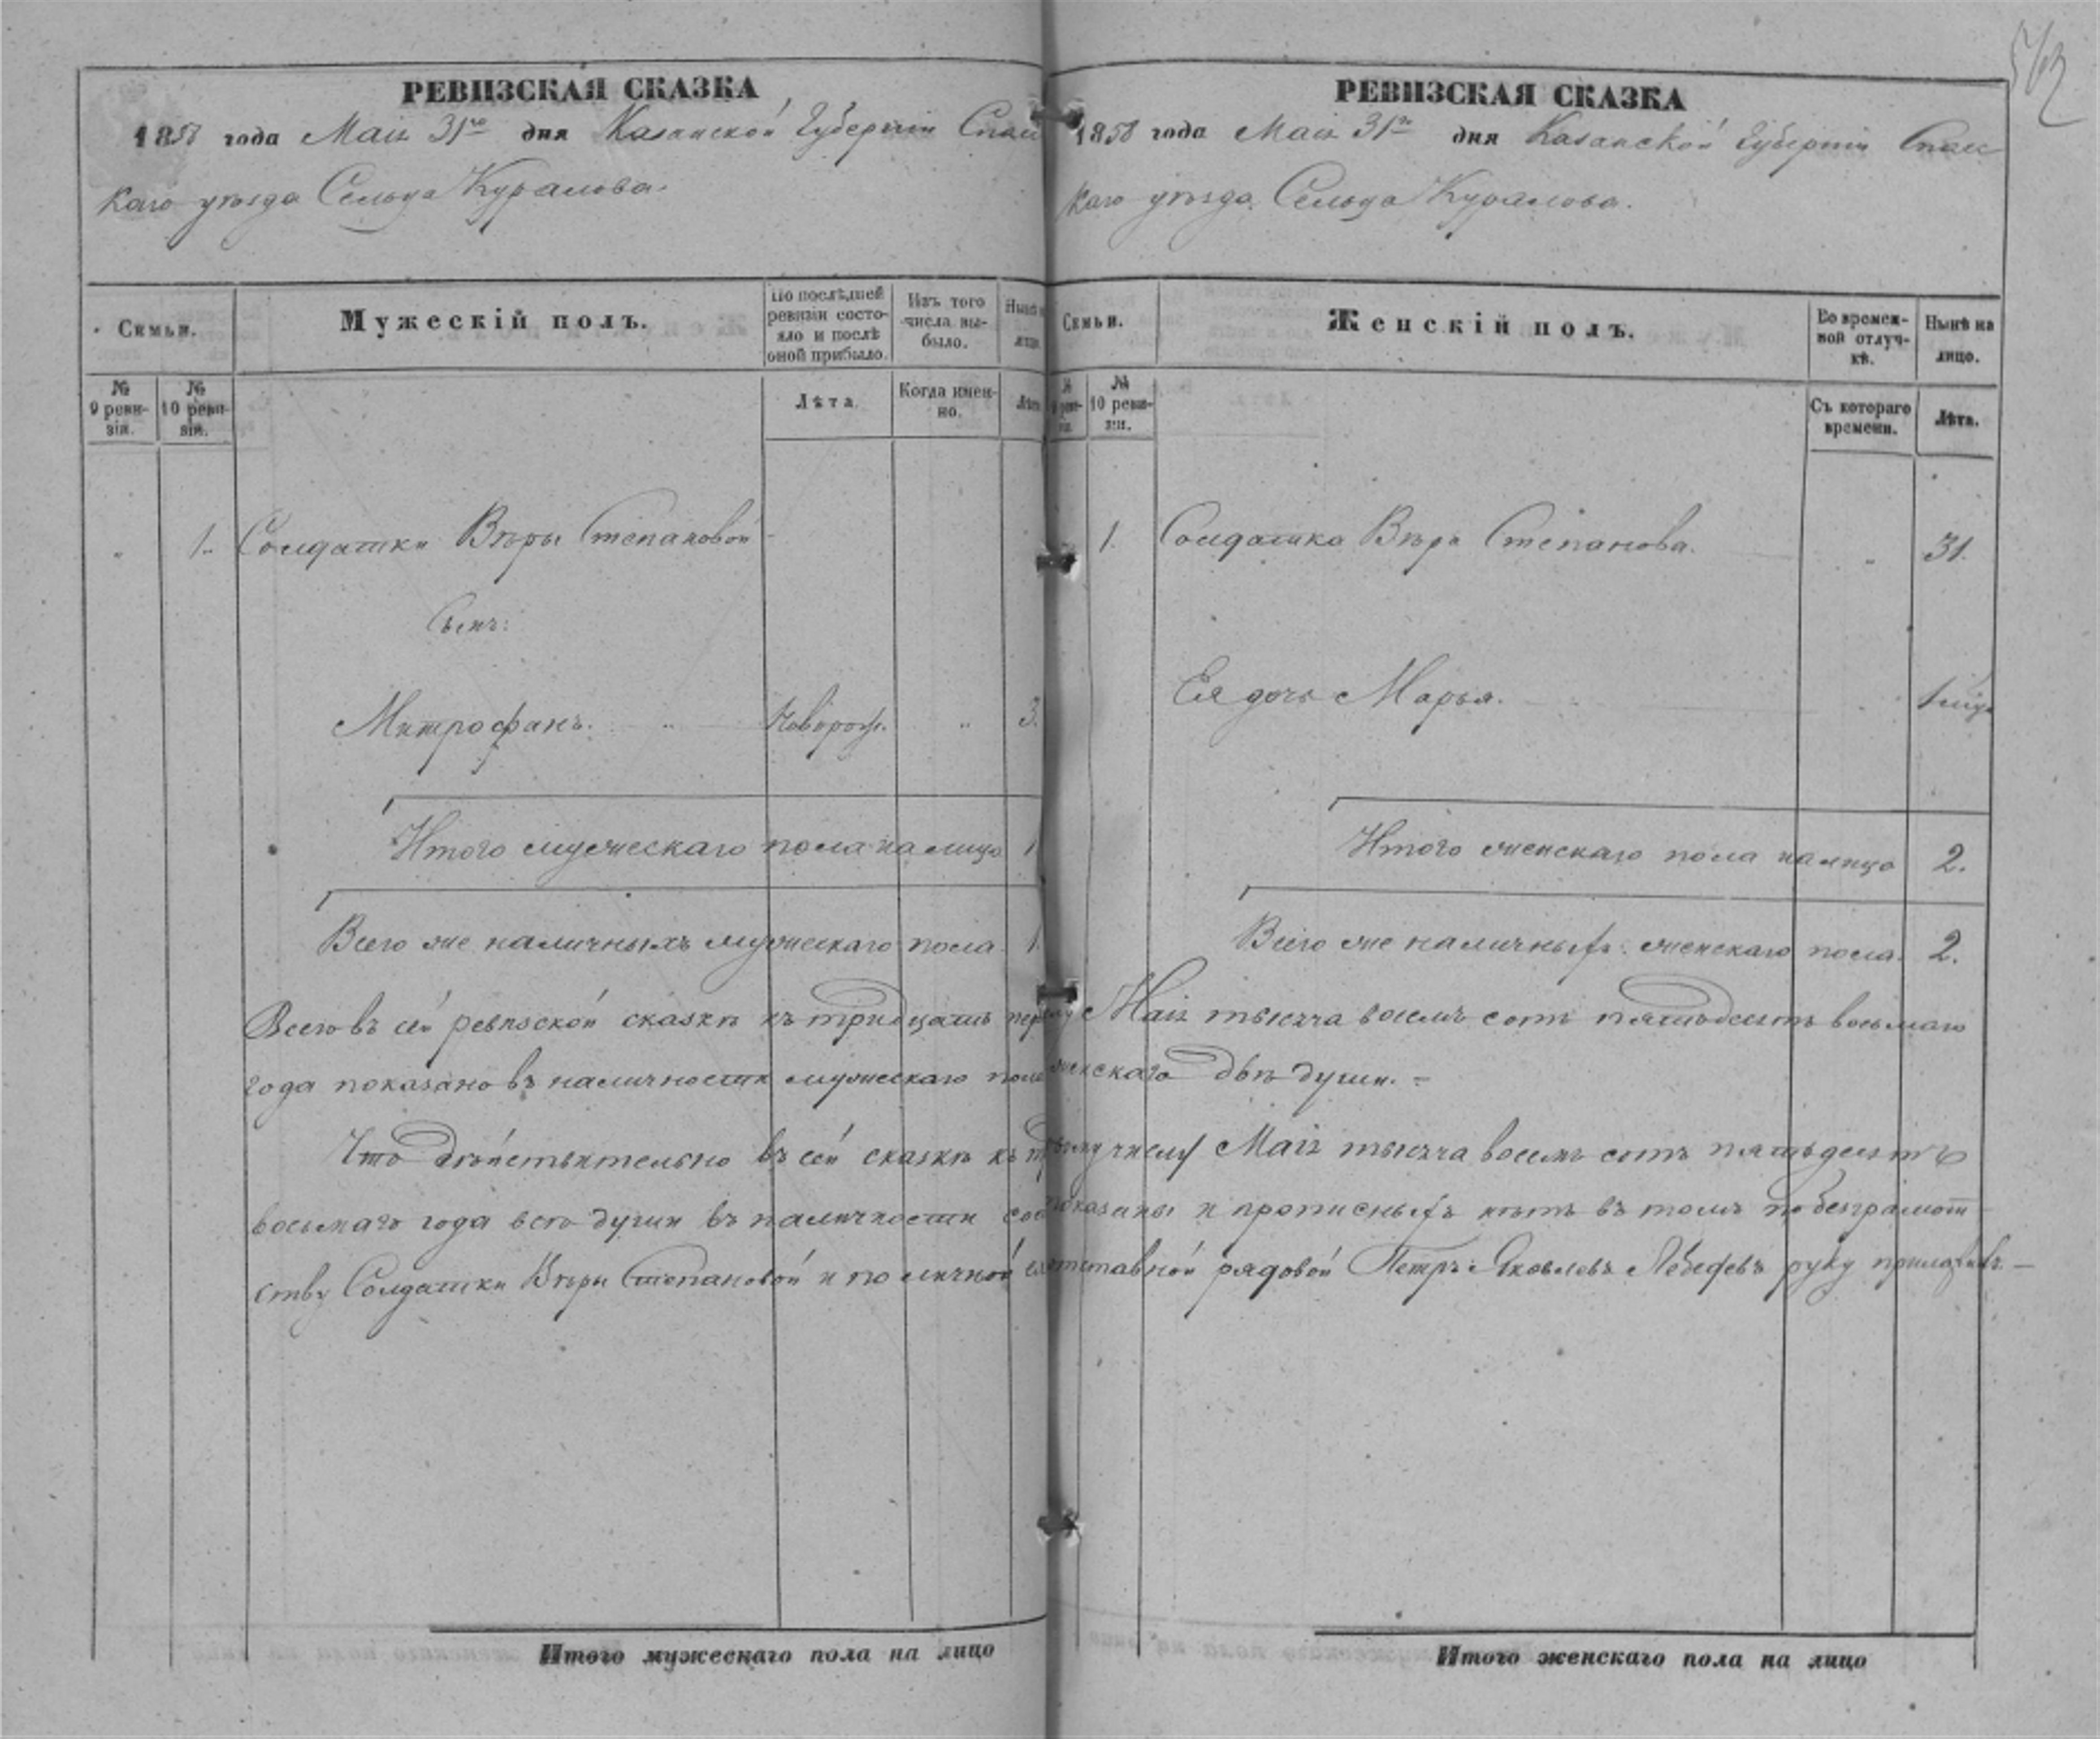 РЕВИЗСКАЯ СКАЗКА
1858 года Маія 31го дня Казанской Губерніи Спас
каго уѣзда Сельца Куралова.
Семьи.
Мужескій полъ.
По послѣдней ревизіи состояло и послѣ оной прибыло.
Изъ того числа выбыло.
Нынѣ
лицо.
№ 9 ревизіи.
№ 10 ревизіи.
Лѣта.
Когда именно.
Лѣта
" 1. Солдатки Вѣры Степановой
Сынъ:
Митрофанъ. " Новорож. " 3.
Итого мужескаго пола на лицо 1
Всего же наличныхъ мужескаго пола 1.
Всего въ сей ревизской сказкѣ къ тридцать пер
года показано въ наличности мужескаго пола
Что дѣйствительно въ сей сказкѣ къ
восьмаго года всѣ души въ наличности
ству Солдатки Вѣры Степановой и по личной
Итого мужескаго пола на лицо
562
РЕВИЗСКАЯ СКАЗКА
1858 года Маія 31го дня Казанской Губерніи Спас
каго уѣзда Сельца Куралова.
Семьи.
Женскій полъ.
Во временной отлучкѣ.
Нынѣ на лицо.
№ 10 ревизіи.
Съ котораго времени.
Лѣта.
1. Солдатка Вѣра Степанова. " 31.
Ея дочь Марья.
Итого женскаго пола налицо 2.
Всего же наличныхъ женскаго пола. 2.
Маія тысяча восемь сотъ пятьдесятъ восьмаго
женскаго двѣ души.
числу Маія тысяча восемь сотъ пятьдесятъ
показаны и прописныхъ нѣтъ въ томъ по безграмот
отставной рядовой Петръ Яковлевъ Лебедевъ руку приложилъ.
Итого женскаго пола на лицо